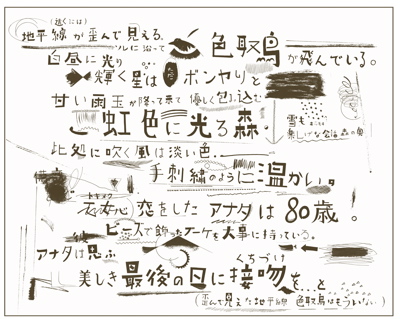 (遠くには)
地平線が歪んで見える。
ルルに沿って
色取鳥が飛んでいる。
白昼に光り...
輝く星はボンヤリと
甘い雨玉が降って来て 優しく包み込む
虹色に光る森.
雪も
楽しげな会話 森の奥
此処に吹く風は淡い色.
手刺繍のように温かい。
恋をしたアナタは80歳。
ビーズで飾ったブーケを大事に持っている。
アナタは思ふ
くちづけ
美しき最後の日に接吻を...と
(歪んで見えた地平線 色取鳥はもういない)